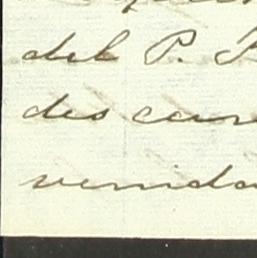 del P.
des can
venida